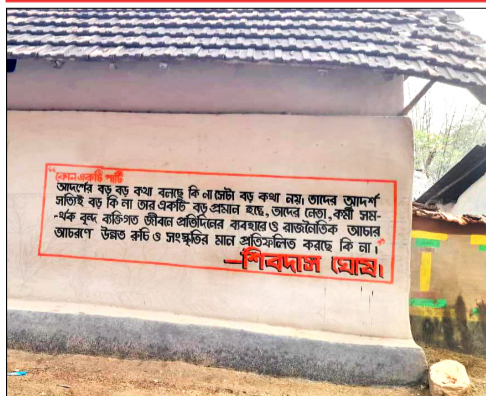 “কোন একটি পার্টি
আদর্শের বড় বড় কথা বলছে কি না সেটা বড় কথা নয়। তাদের আদর্শ
সত্যিই বড় কি না তার একটি বড় প্রমান হচ্ছে, তাদের নেতা, কর্মী সম-
-র্থক বৃন্দ ব্যক্তিগত জীবনে প্রতিদিনের ব্যবহারে ও রাজনৈতিক আচার
আচরণে উন্নত রুচি ও সংস্কৃতির মান প্রতিফলিত করছে কি না।”
—শিবদাস ঘোষ।